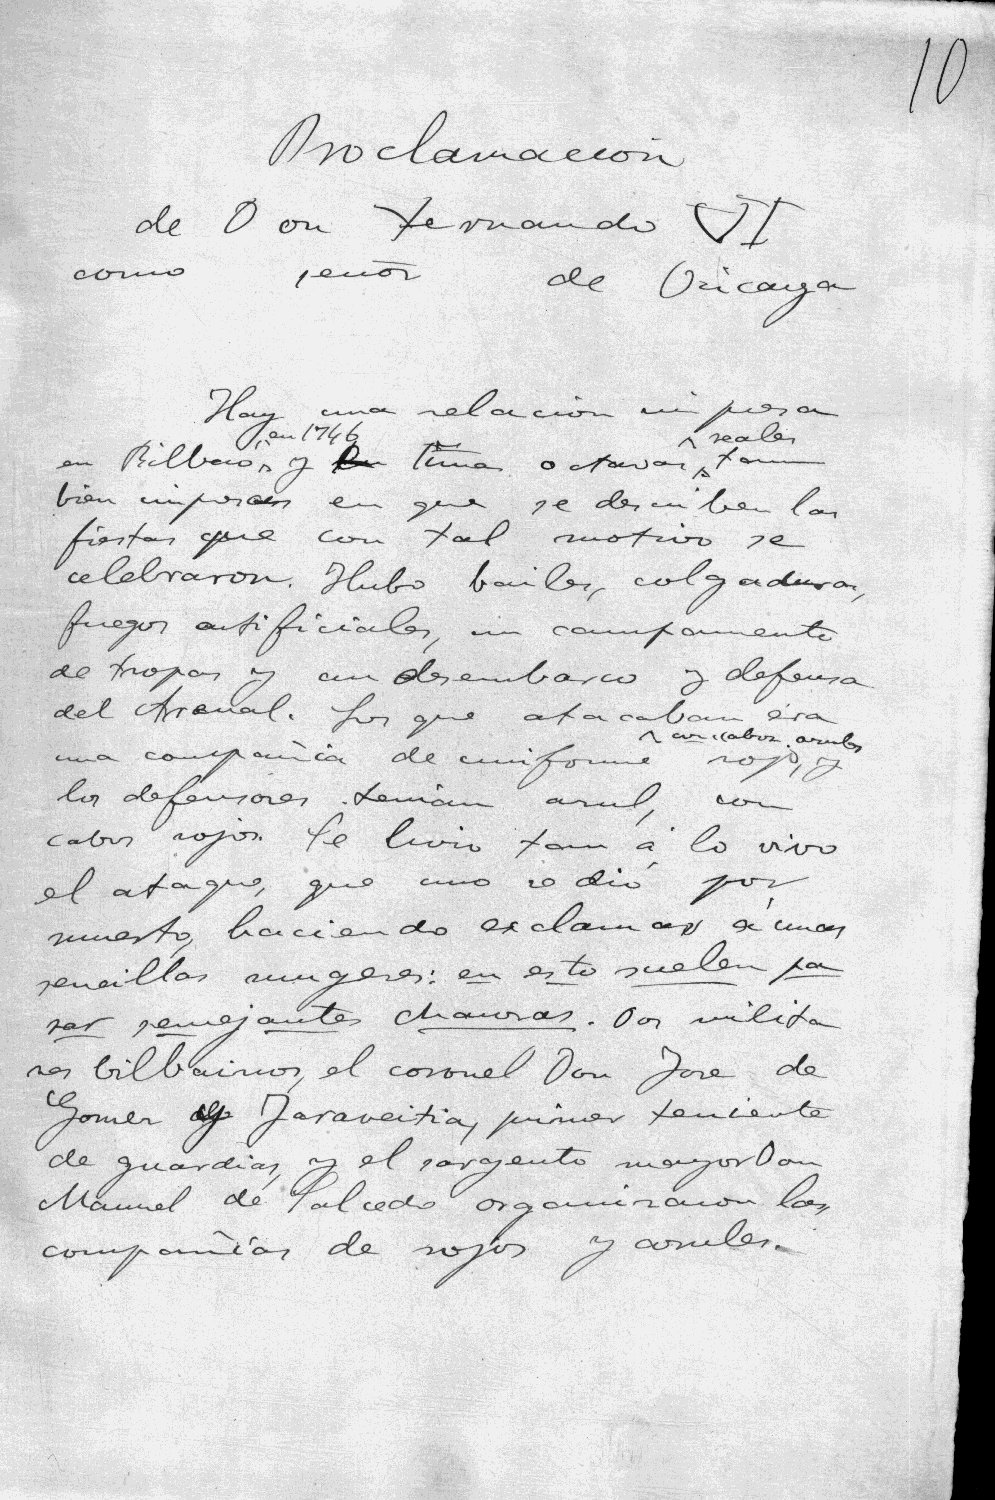 10
Proclamación
de Don Fernando VI
como señor de Vizcaya
Hay una relación impresa
en 1746 reales
en Bilbao, y unas octavas, tam
bien impresas en que se describen las
fiestas que con tal motivo se
celebraron. Hubo bailes, colgaduras,
fuegos artificiales, un campamento
de tropas y un desembarco y defensa
del Arenal. Los que atacaban era
con cabos azules
una compañía de uniforme rojo, y
los defensores tenían azul, con
cabos rojos. Se hizo tan á lo vivo
el ataque, que uno se dió por
muerto, haciendo exclamar á unas
sencillas mugeres: en esto suelen pa
rar semejantes chanzas. Dos milita
res bilbainos, el coronel Don Jose de
Gomez y Jaraveitia, primer teniente
de guardias, y el sargento mayor Don
Manuel de Salcedo organizaron las
compañías de rojos y azules.